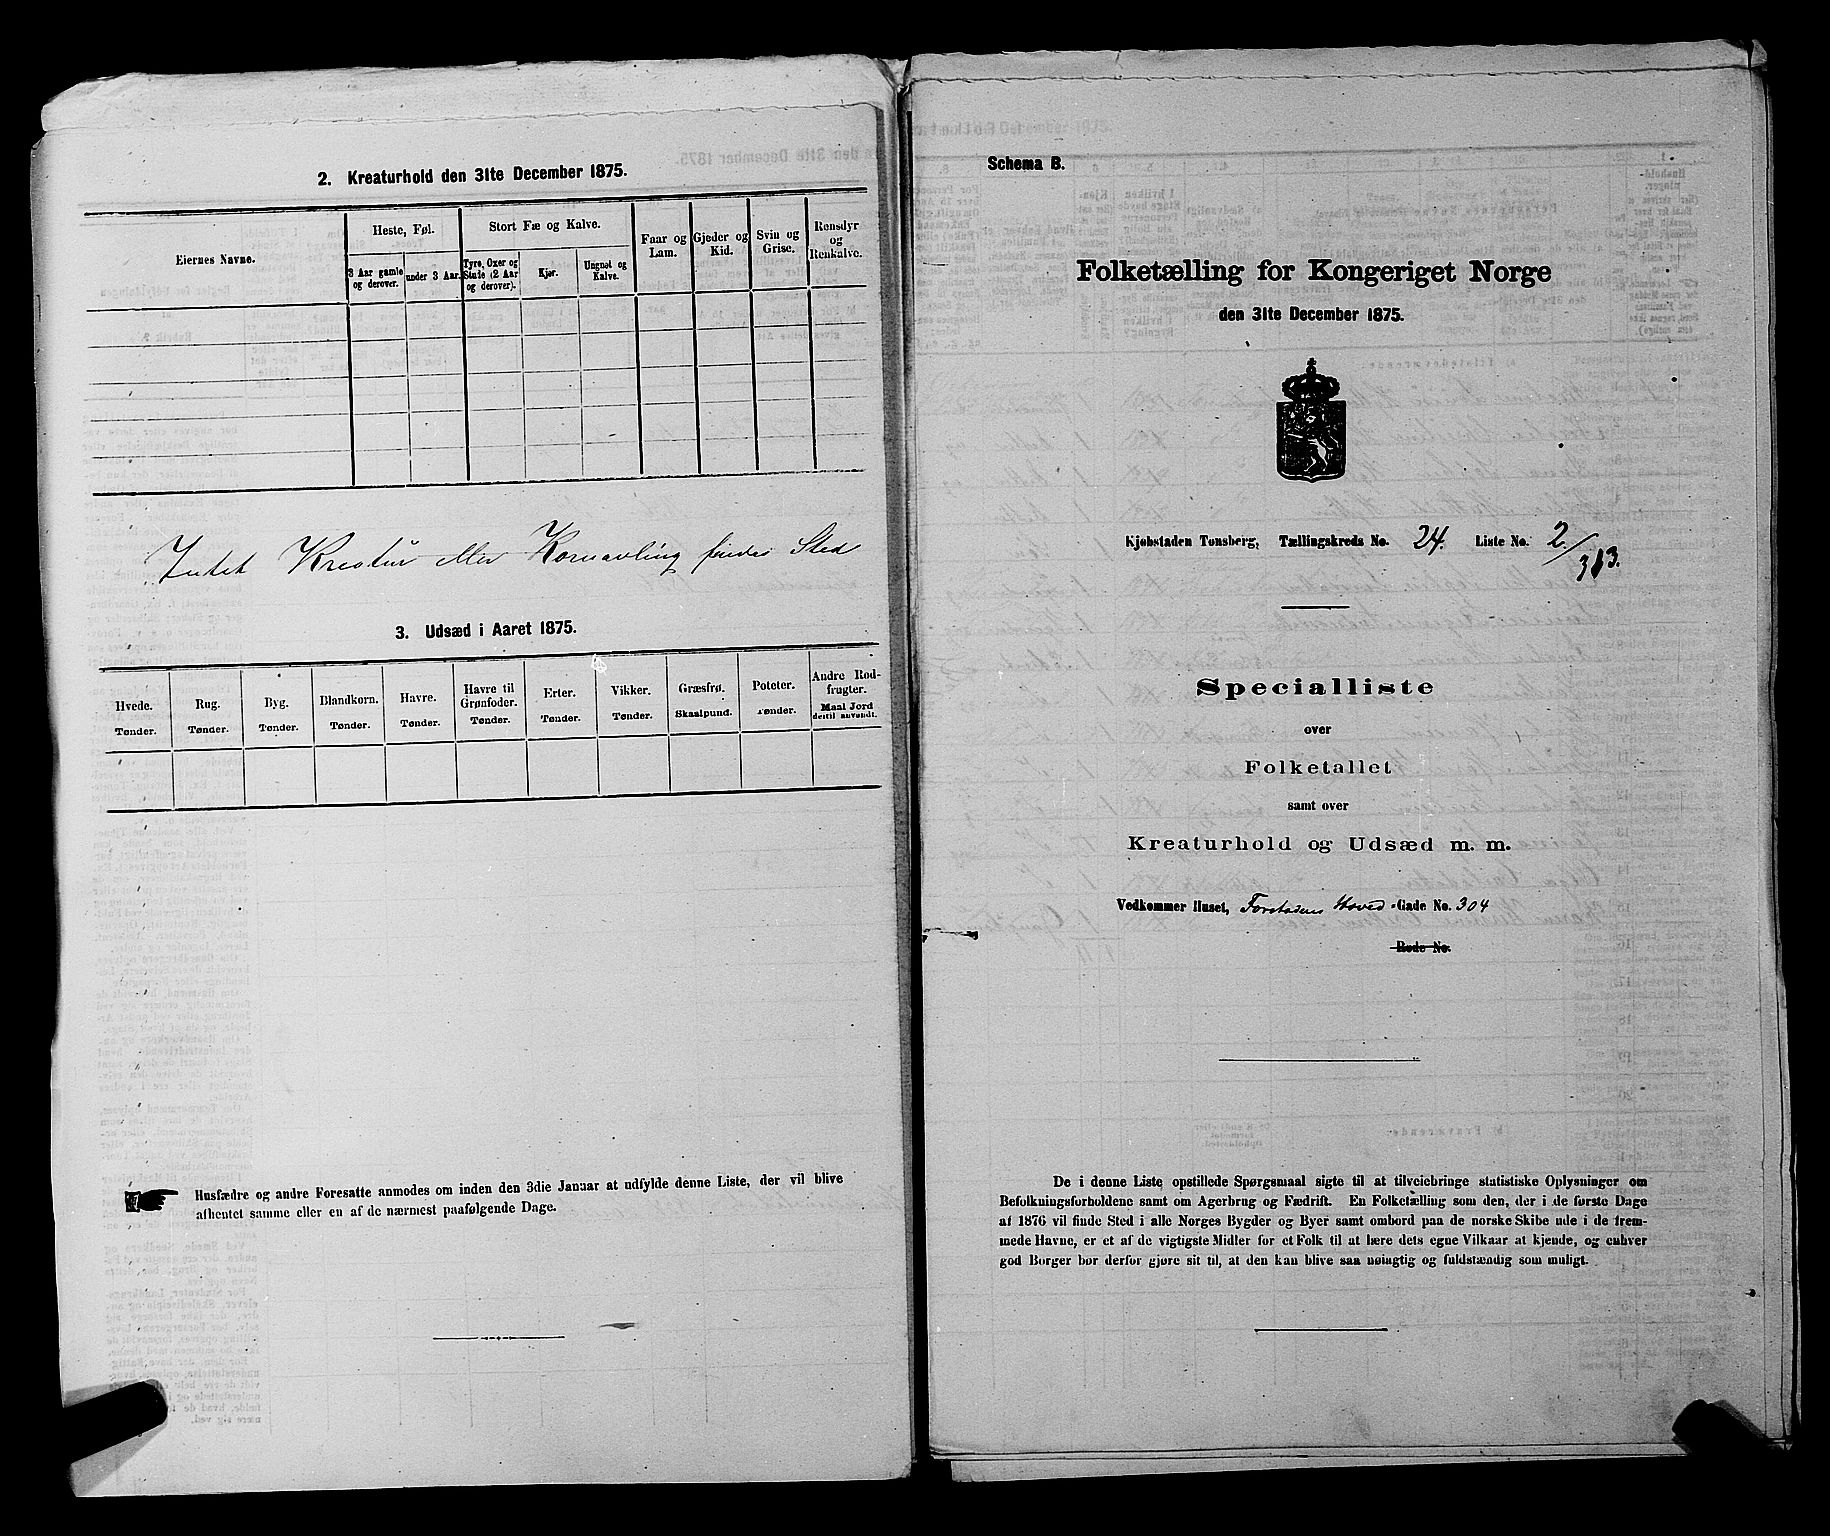 2. Kreaturhold den 31te December 1875.
Eiernes Navne.
Heste, Føl.
3 Aar gamle og derover.
under 3 Aar.
Stort Fæ og Kalve.
Tyre, Oxer og Stude (2 Aar og derover).
Kjør.
Ungnøt og Kalve.
Faar og Lam.
Gjeder og Kid.
Svin og Grise.
Rensdyr og Renkalve.
Intet Kreatur eller Kornavling findes Sted
3. Udsæd i Aaret 1875.
Hvede. Tønder.
Rug. Tønder.
Byg. Tønder.
Blandkorn. Tønder.
Havre. Tønder.
Havre til Grønfoder. Tønder.
Erter. Tønder.
Vikker. Tønder.
Græsfrø. Skaalpund.
Poteter. Tønder.
Andre Rodfrugter. Maal Jord dertil anvendt.
Husfædre og andre Foresatte anmodes om inden den 3die Januar at udfylde denne Liste, der vil blive
afhentet samme eller en af de nærmest paafølgende Dage.
Schema B.
Folketælling for Kongeriget Norge
den 31te December 1875.
Kjøbstaden Tønsberg, Tællingskreds No. 24. Liste No. 2/
313.
Specialliste
over
Folketallet
samt over
Kreaturhold og Udsæd m. m.
Vedkommer Huset, Forstadens Hoved-Gade No. 304
Rode No.
De i denne Liste opstillede Spørgsmaal sigte til at tilveiebringe statistiske Oplysninger om
Befolkningsforholdene samt om Agerbrug og Fædrift. En Folketælling som den, der i de første Dage
af 1876 vil finde Sted i alle Norges Bygder og Byer samt ombord paa de norske Skibe ude i de frem-
mede Havne, er et af de vigtigste Midler for et Folk til at lære dets egne Vilkaar at kjende, og enhver
god Borger bør derfor gjøre sit til, at den kan blive saa nøiagtig og fuldstændig som muligt.